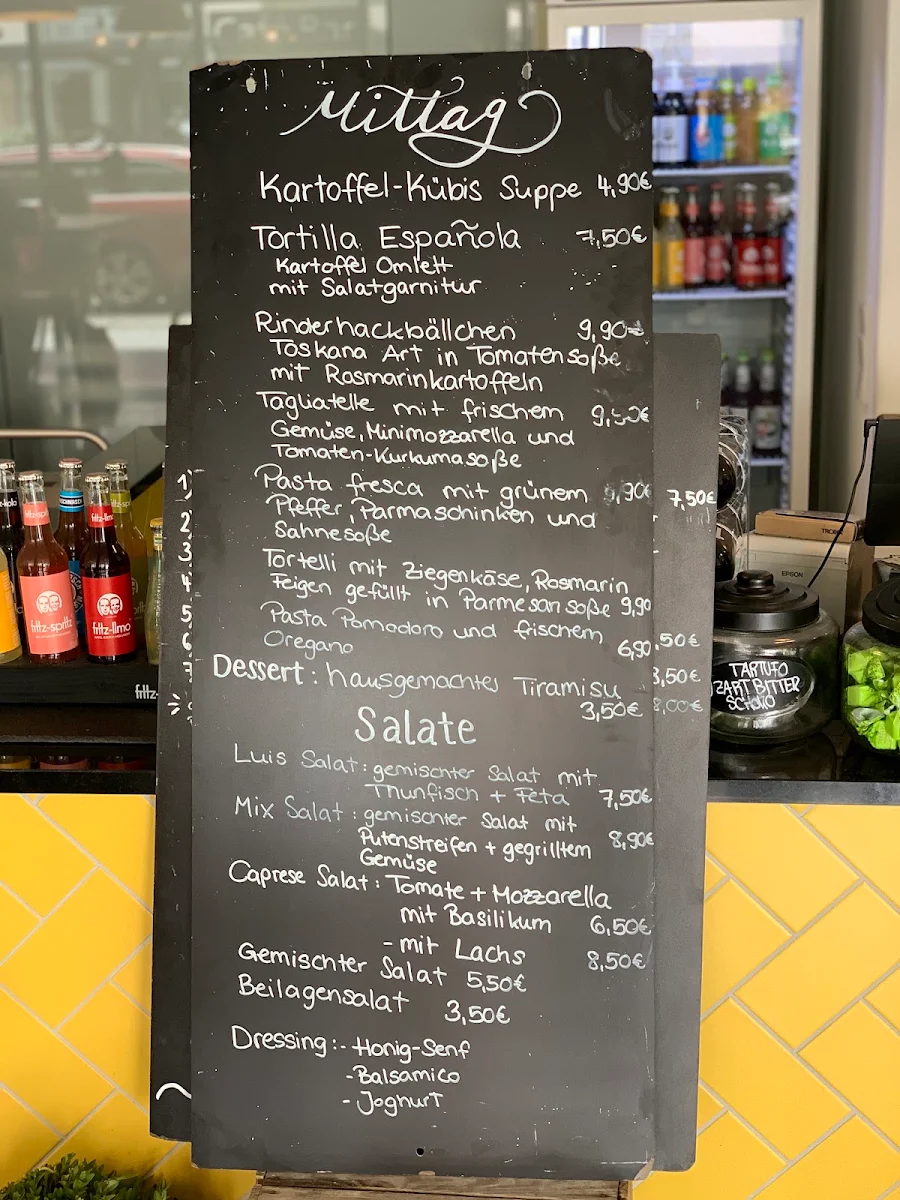 Mittag
Kartoffel-Kübis Suppe 4,90€
Tortilla Española 7,50€
Kartoffel Omlett
mit Salatgarnitur
Rinderhackbällchen 9,90€
Toskana Art in Tomatensoße
mit Rosmarinkartoffeln
Tagliatelle mit frischem
Gemüse, Minimozzarella und
Tomaten-Kurkumasoße
Pasta fresca mit grünem
Pfeffer, Parmaschinken und
Sahnesoße
Tortelli mit Ziegenkäse, Rosmarin
Feigen gefüllt in Parmesansoße 9,90
Pasta Pomodoro und frischem
Oregano 6,90
Dessert: hausgemachtes Tiramisu
3,50€
Salate
Luis Salat: gemischter Salat mit
Thunfisch + Feta 7,50€
Mix Salat: gemischter Salat mit
Putenstreifen + gegrilltem 8,90€
Gemüse
Caprese Salat: Tomate + Mozzarella
mit Basilikum 6,50€
- mit Lachs 8,50€
Gemischter Salat 5,50€
Beilagensalat 3,50€
Dressing: - Honig-Senf
- Balsamico
- Joghurt
7,50€
,50€
3,50€
8,00€
1)
2
3
4
5
6
7
fritz-spritz
fritz-limo
fritz-
EPSON
TARTUFO
ZARTBITTER
SCHOKO